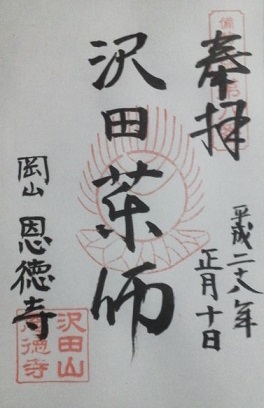 奉拝
平成二十八年
正月十日
沢田薬師
岡山 恩徳寺
沢田山
恩徳寺